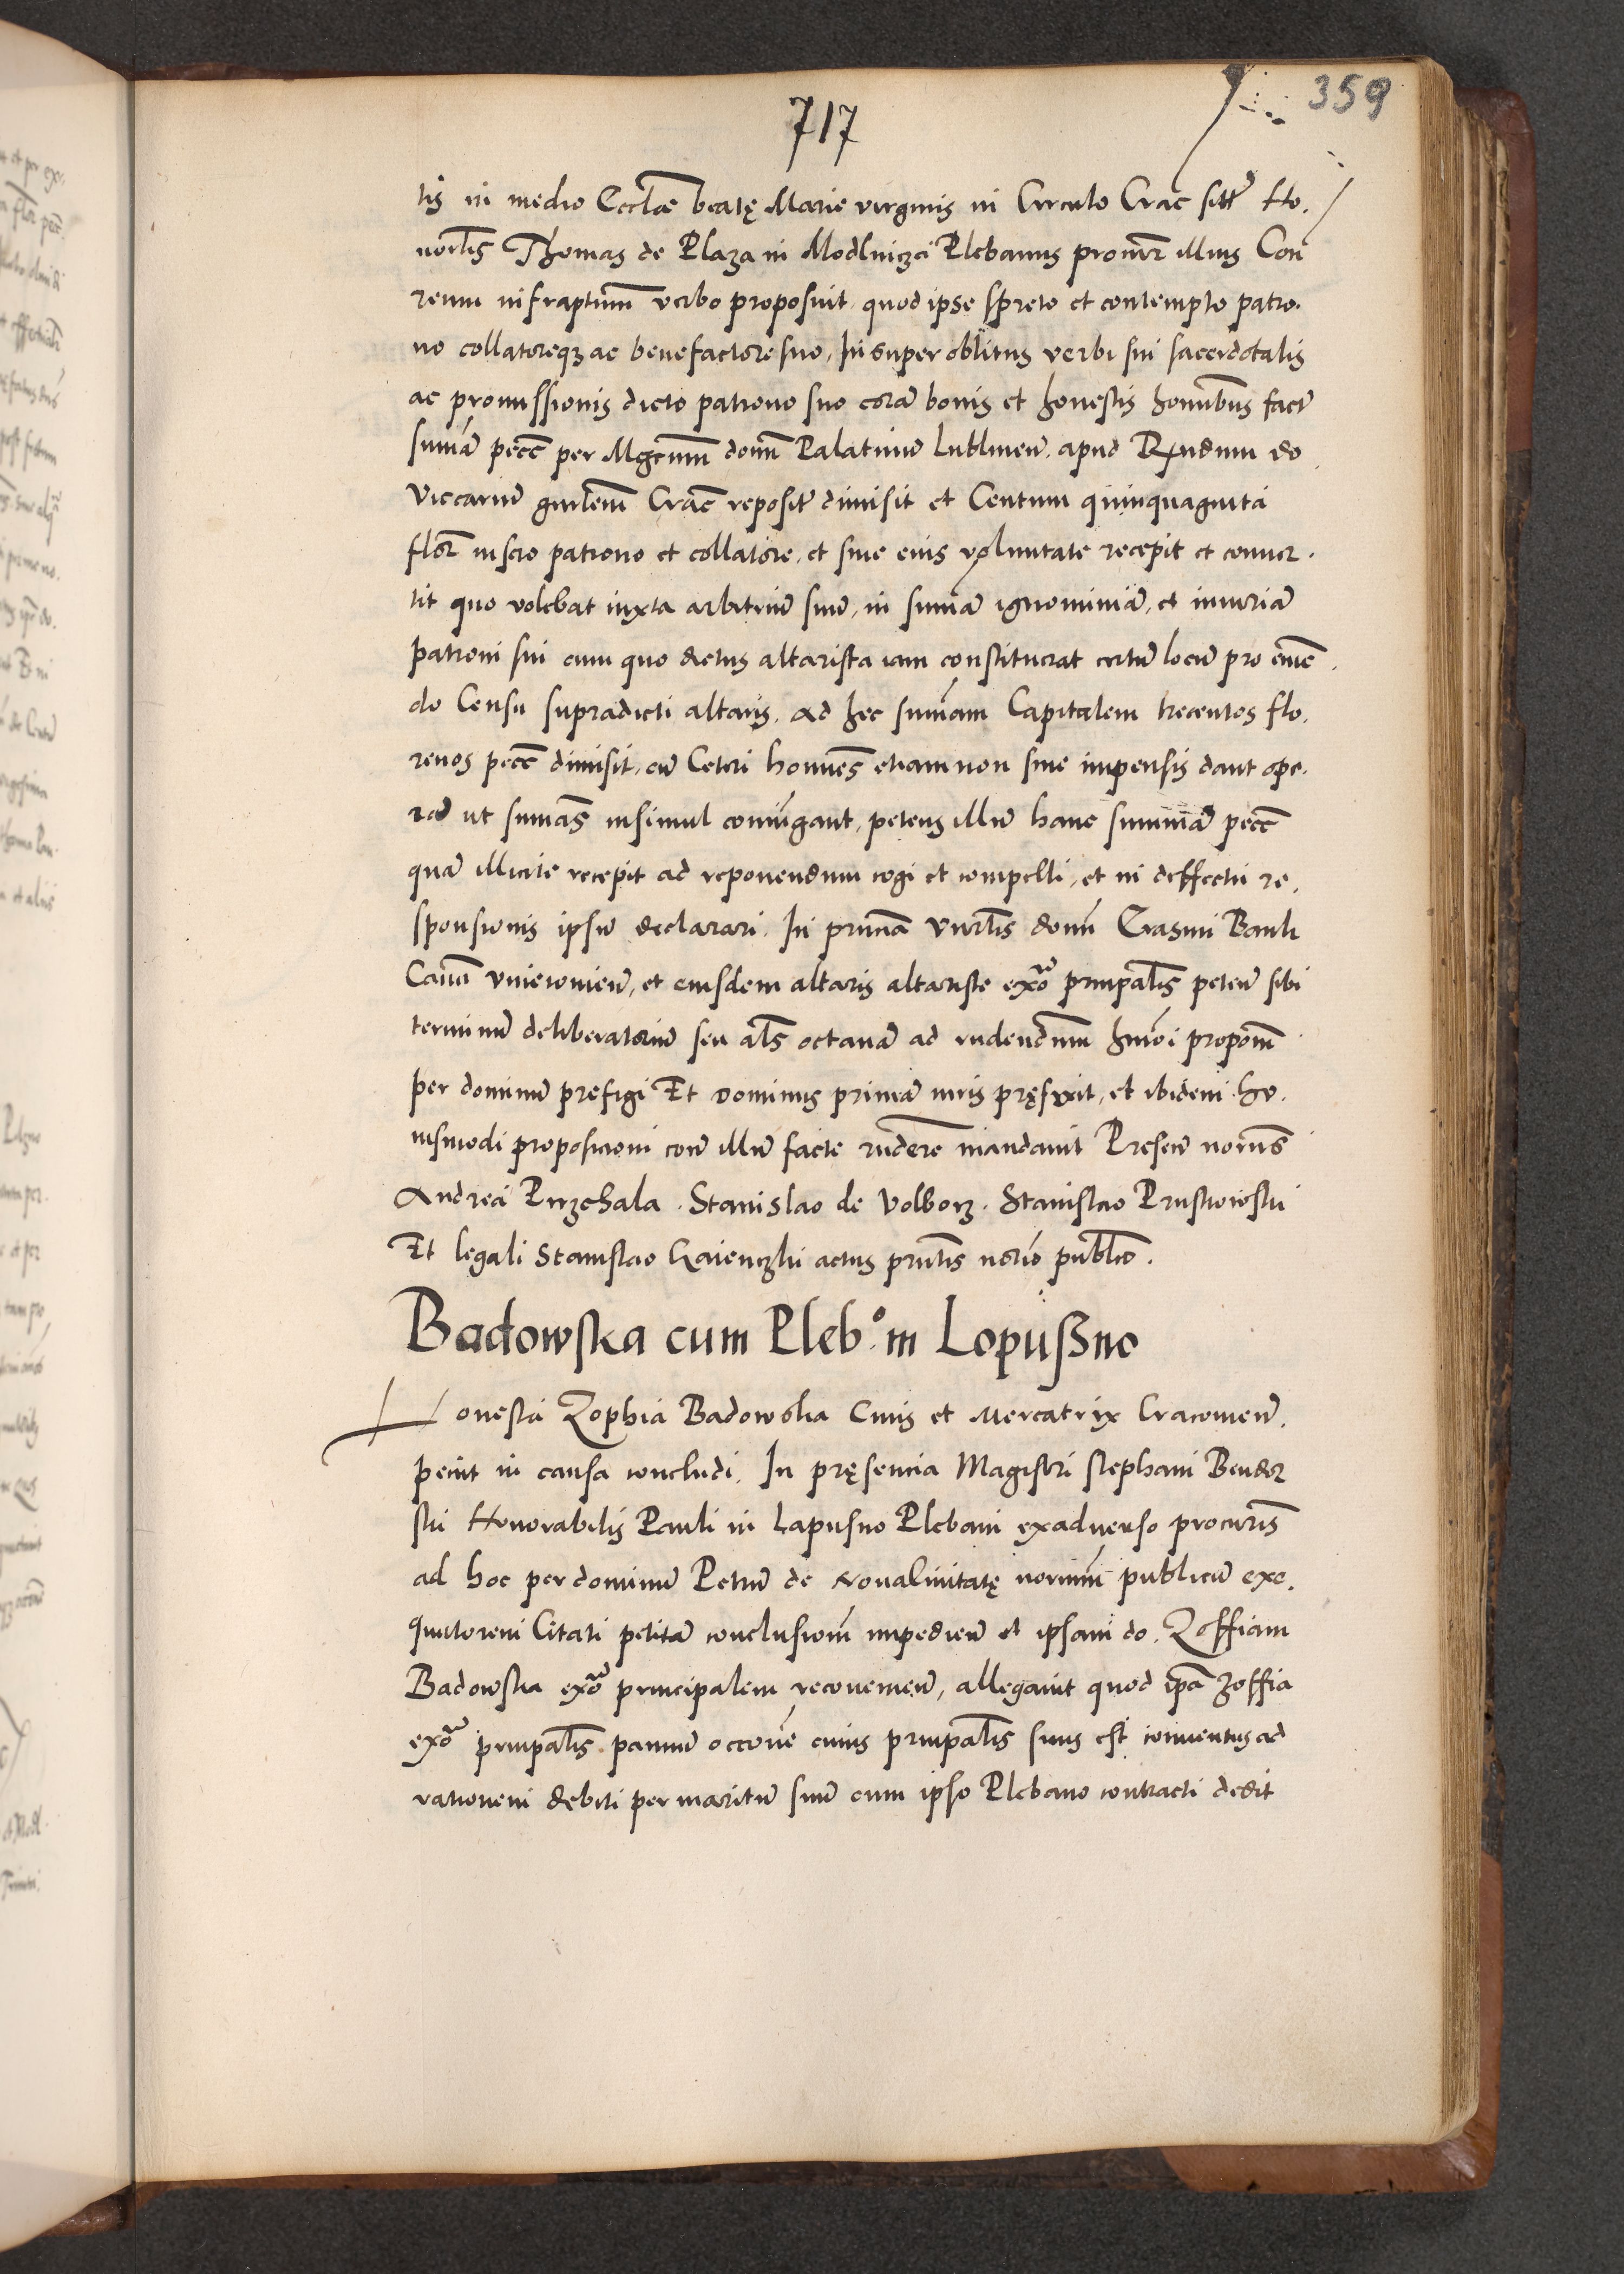 359
717
tis in medio Eccłae beatę Marie virginis in Circulo Crac sitt̃ Ho,
norłis Thomas de Plaza in Modlnicza Plebanus procur̃ illius Con
reum infraptum̃ verbo proposuit quod ipse spreto et contempto patro,
no collatoreqʒ ac benefactore suo, Insuper oblitus verbi sui sacerdotalis
ac promissionis dicto patrono suo corã bonis et honestis hominibus fact̃
sum̃ã pecc̃ per Mgcum̃ domñ Palatinũ Lublineñ. apud Rndum do
Viccariũ gnrlem̃ Crac̃ reposit̃ dimisit et Centum quinquaginta
flor̃ inscio patrono et collatore, et sine eius voluntate recepit et conuer.
tit quo volebat iuxta arbitriũ suũ, in sum̃ã ignominiã, et iniuriã
patroni sui cum quo dictus altarista iam constituerat certũ locũ pro emẽ.
do Censu supradicti altaris. Ad hec sum̃am Capitalem trecentos flo,
renos pecc̃ dimisit, cũ Ceteri homines etiam non sine impensis dant ope,
rã ut sum̃as insimul coniũgant, petens illũ hanc summã pecc̃
quã illicite recepit ad reponendum cogi et compelli, et in deffectu re,
sponsionis ipsũ declarari. In pnciã Virłis domñ Erasmi Bank
Canoñ Vnieiouieñ, et eiusdem altaris altariste exãdũo prnpałis peteñ sibi
terminũ deliberatoriũ seu ałs octauã ad rndendum hmõi propoñ
per dominũ prefigi Et dominus primã iuris pręfixit, et ibidem hu,
iusmodi propositioni cotrũ illũ facte rndere mandauit Preseñ nornis
Andrea Przechala. Stanislao de Volborz. Stanislao Pruskowski
Et legali Stanislao Gaienczki actus prntis notrio publico.
Badowska cum Pleb.° in Lopuszno
Honesta Zophia Badowska Ciuis et Mercatrix Cracouieñ.
petiit in causa concludi. In pręsencia Magistri Stephani Bendor
ski Honorabilis Pauli in Lapusno Plebani exaduerso procuris
ad hoc per dominũ Petrũ de Noualiuitatę noriũm publicũ exe,
qutorem Citati petitã conclusionẽ impedieñ et ipsam do. Zoffiam
Badowska exõ principalem reconueñ, allegauit quod ipã Zoffia
exõ prnpałis pannũ occone cuius prnpałis suus est conuentus ad
rationem debiti per maritũ suũ cum ipso Plebano contracti dedit